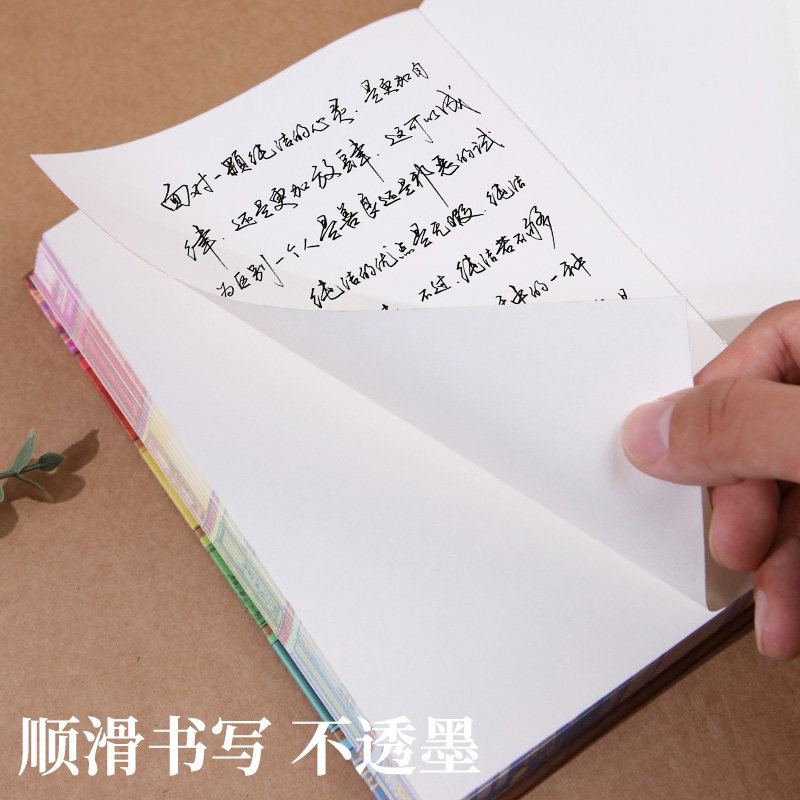 面对一颗纯洁的心灵.是更加自
律.还是更加放肆.这可以成
为区别一个人是善良还是邪恶的试
纯洁的优点是无暇.纯洁
不过.纯洁若不够
中的一种
顺滑书写 不透墨